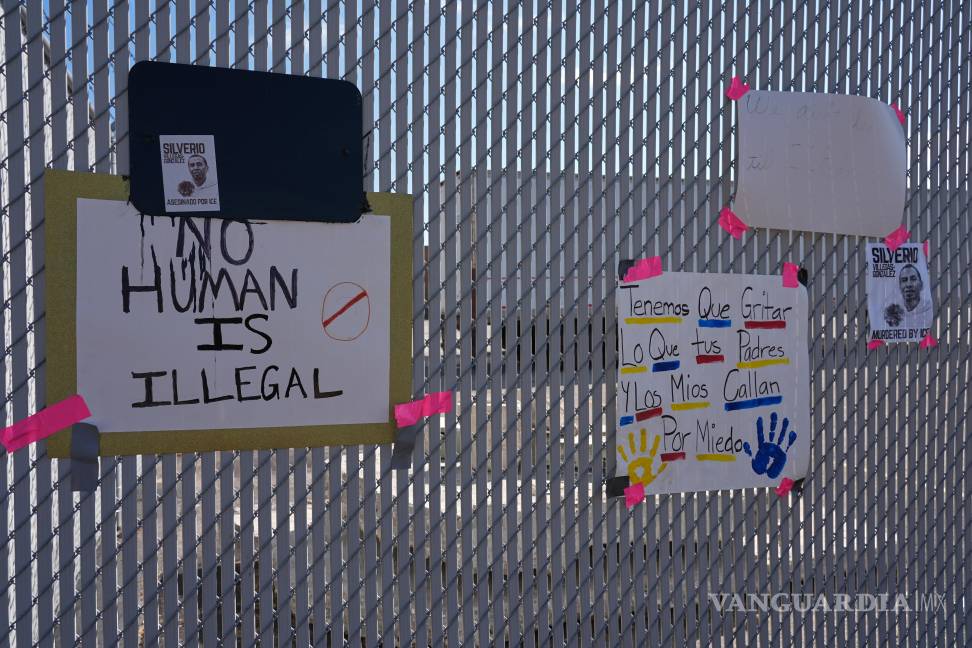 SILVERIO
VILLEGAS
GONZÁLEZ
ASESINADO POR ICE
NO
HUMAN
IS
ILLEGAL
Tenemos Que Gritar
Lo Que tus Padres
Y Los Mios Callan
Por Miedo
We
SILVERIO
VILLEGAS
GONZÁLEZ
MURDERED BY ICE
VANGUARDIA MX